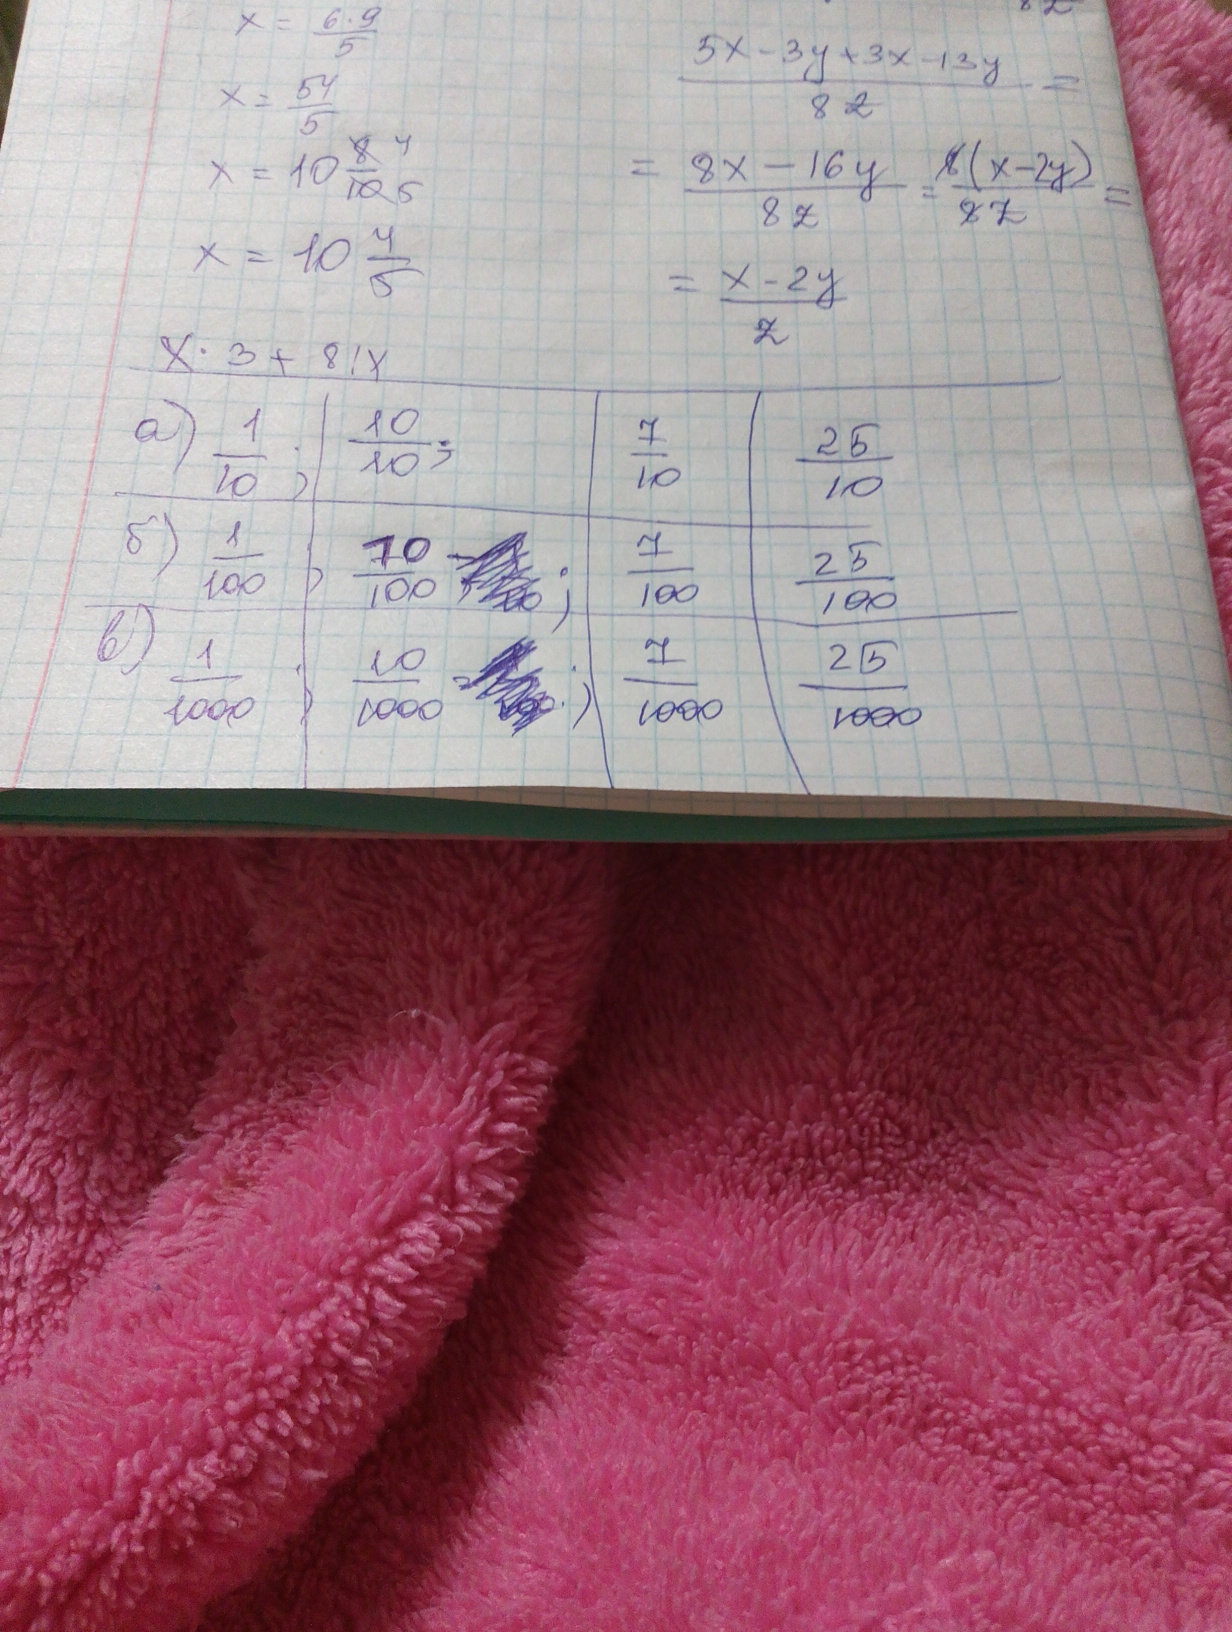 x = 6·9/5
x = 54/5
x = 10 8/10 4/5
x = 10 4/5
x · 3 + 81x
5x - 3y + 3x - 13y / 8z =
= 8x - 16y / 8z = 8(x - 2y) / 8z =
= x - 2y / z
а) 1/10 ; 10/10 ; 7/10 25/10
б) 1/100 ; 70/100 ; 7/100 25/100
в) 1/1000 ; 10/1000 ; 7/1000 25/1000